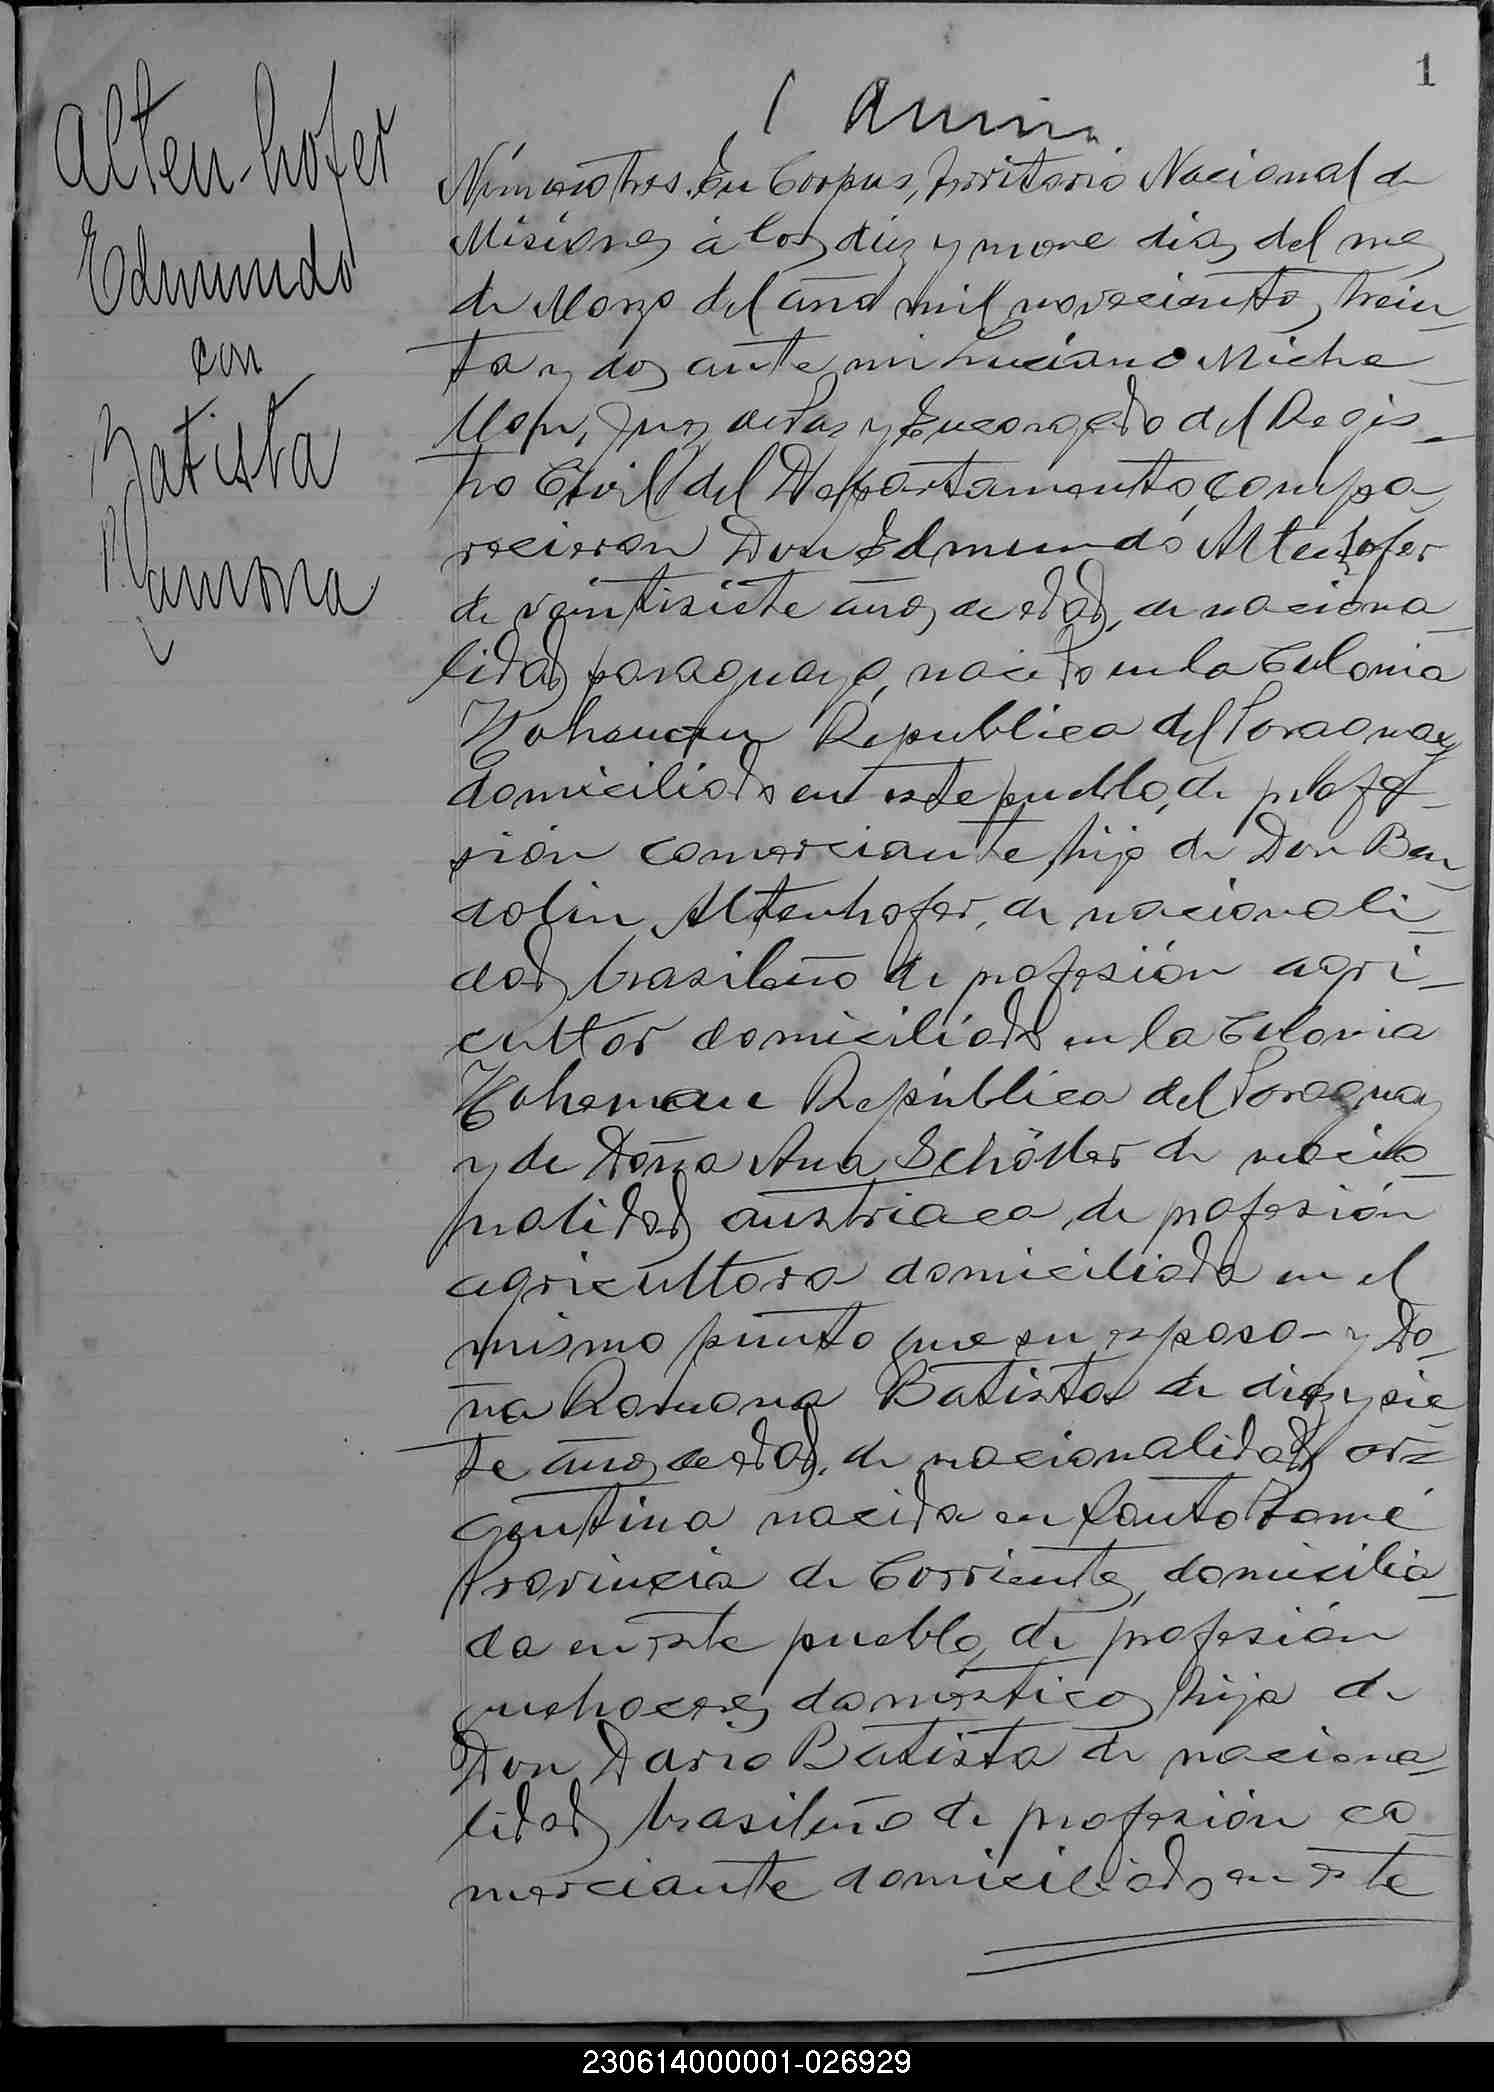 1
Alten-hofer
Edmundo
con
Batista
Ramona
Número tres. En Corpus, Territorio Nacional de
Misiones á los diez y nove dias del mes
de Marzo del año mil novecientos trein-
ta y dos ante mi Luciano Miche-
llon, Juez de Paz y Encargado del Regis-
tro Civil del Departamento, compa-
recieron Don Edmundo Altenhofer
de veintisiete años de edad, de naciona-
lidad paraguayo, nacido en la Colonia
Hohenau Republica del Paraguay
domiciliado en este pueblo, de profe-
sión comerciante, hijo de Don Ben-
dolin Altenhofer, de nacionali-
dad brasileño de profesión agri-
cultor domiciliado en la Colonia
Hohenau República del Paraguay
y de Doña Ana Schöller de nacio-
nalidad austriaca, de profesión
agricultora domiciliada en el
mismo punto que su esposo - y Do-
ña Ramona Batista de diez y sie-
te años de edad, de nacionalidad ar-
gentina nacida en Santo Tomé
Provincia de Corrientes, domicilia-
da en este pueblo, de profesión
quehaceres domésticos, hija de
Don Dario Batista de naciona-
lidad brasileño de profesión co-
merciante domiciliado en este
230614000001-026929